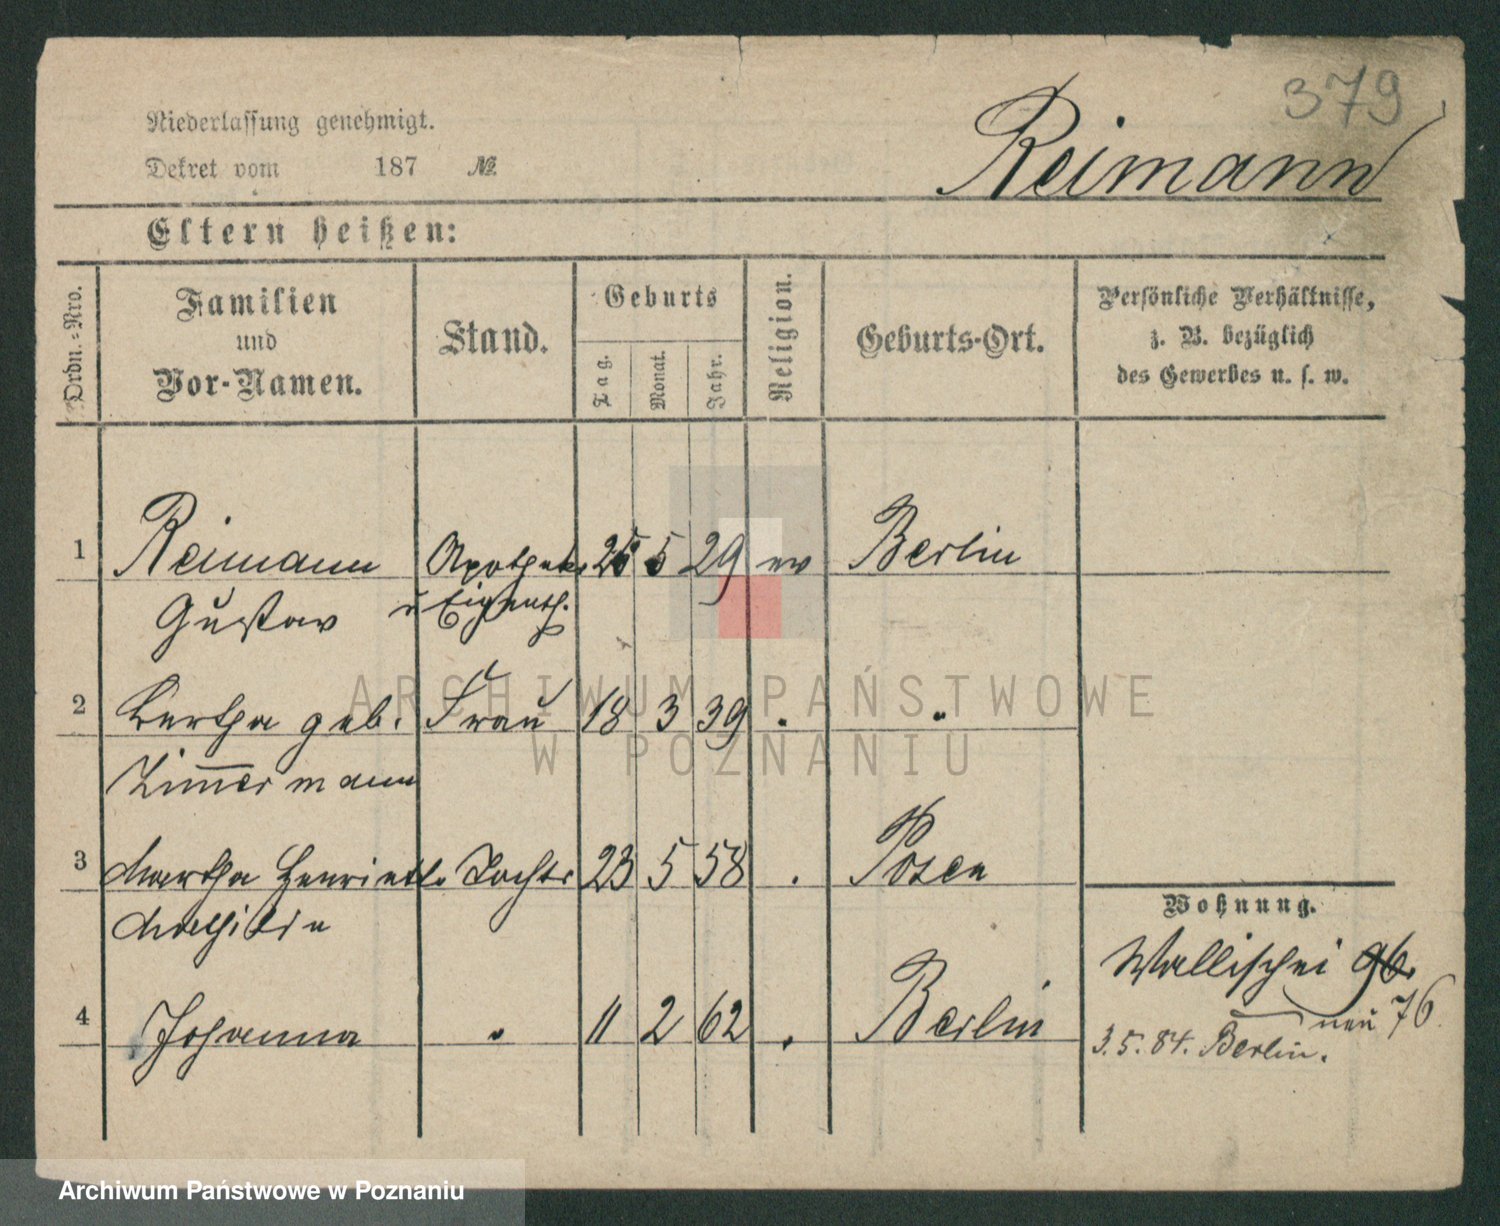 379
Niederlassung genehmigt.
Reimann
Dekret vom 187 №
Eltern heißen:
Ordn.-Nro.
Familien
und
Vor-Namen.
Stand.
Geburts
Tag.
Monat.
Jahr.
Religion.
Geburts-Ort.
Persönliche Verhältnisse,
z. B. bezüglich
des Gewerbes u. s. w.
1 Reimann Apotheker 25 5 29 ev Berlin
Gustav u Eigenth.
2 Bertha geb. Frau 18 3 39 " "
Zimmermann
3 Martha Henriette Tochter 23 5 58 " Posen
Mathilde
4 Johanna " 11 2 62 " Berlin
Wohnung.
Wallischei 96.
neu 76.
3.5.84. Berlin.
ARCHIWUM PAŃSTWOWE
W POZNANIU
Archiwum Państwowe w Poznaniu